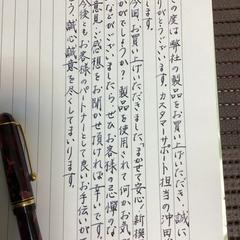 の度は弊社の製品をお買い上げいただき、誠に
りがとうございます。カスタマーサポート担当の中田
します。
今回、お買い上げいただきました「まかせて安心！新模
かがでしょうか？製品を使用されて何かお気
などございましたら、ぜひお客様の忌憚のな
意見・感想をお聞かせ頂ければ幸いです。
今後ともお客様のパートナーとして良いお手伝いがで
う、誠心誠意を尽してまいります。